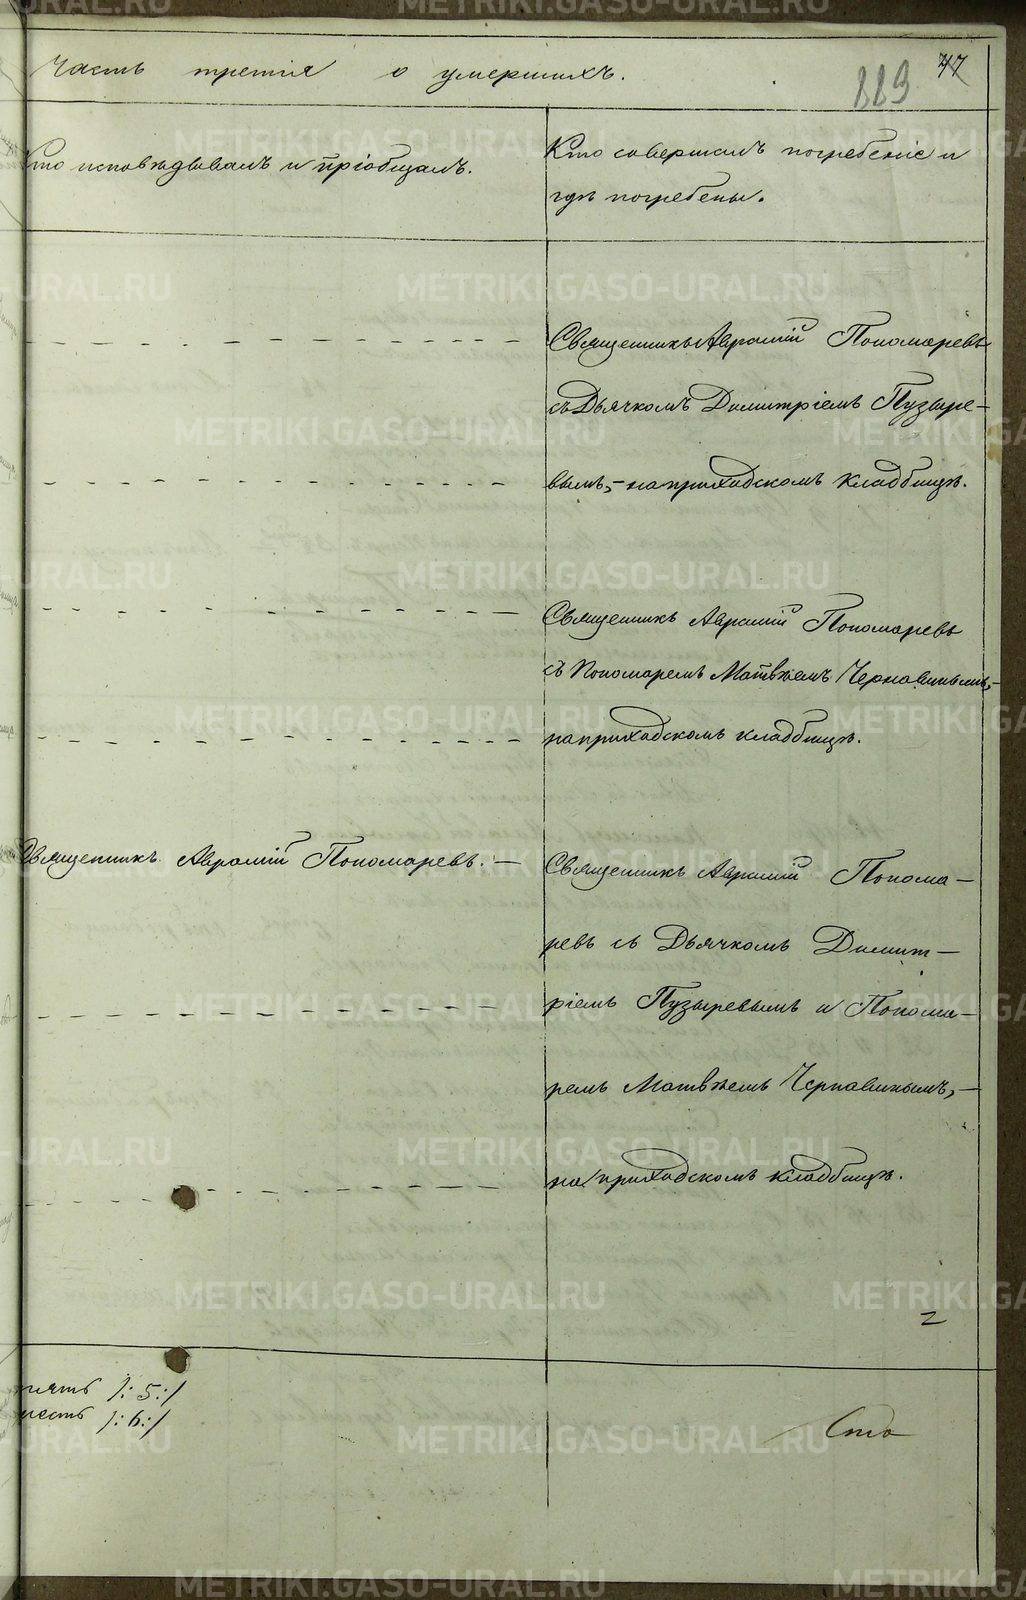 Часть третiя о умершихъ.
889 77
Кто исповѣдывалъ и прiобщалъ.
Кто совершалъ погребенiе и
гдѣ погребены.
Священникъ Аврамiй Пономаревъ
съ Дьячкомъ Димитрiемъ Пузыре-
вымъ,- на приходскомъ кладбищѣ.
Священникъ Аврамiй Пономаревъ
съ Пономаремъ Матвѣемъ Чернавинымъ,-
на приходскомъ кладбищѣ.
Священникъ Аврамiй Пономаревъ. —
Священникъ Аврамiй Понома-
ревъ съ Дьячкомъ Димит-
рiемъ Пузыревымъ и Понома-
ремъ Матвѣемъ Чернавинымъ,-
на приходскомъ кладбищѣ.
пять /: 5 :/
шесть /: 6 :/
METRIKI.GASO-URAL.RU